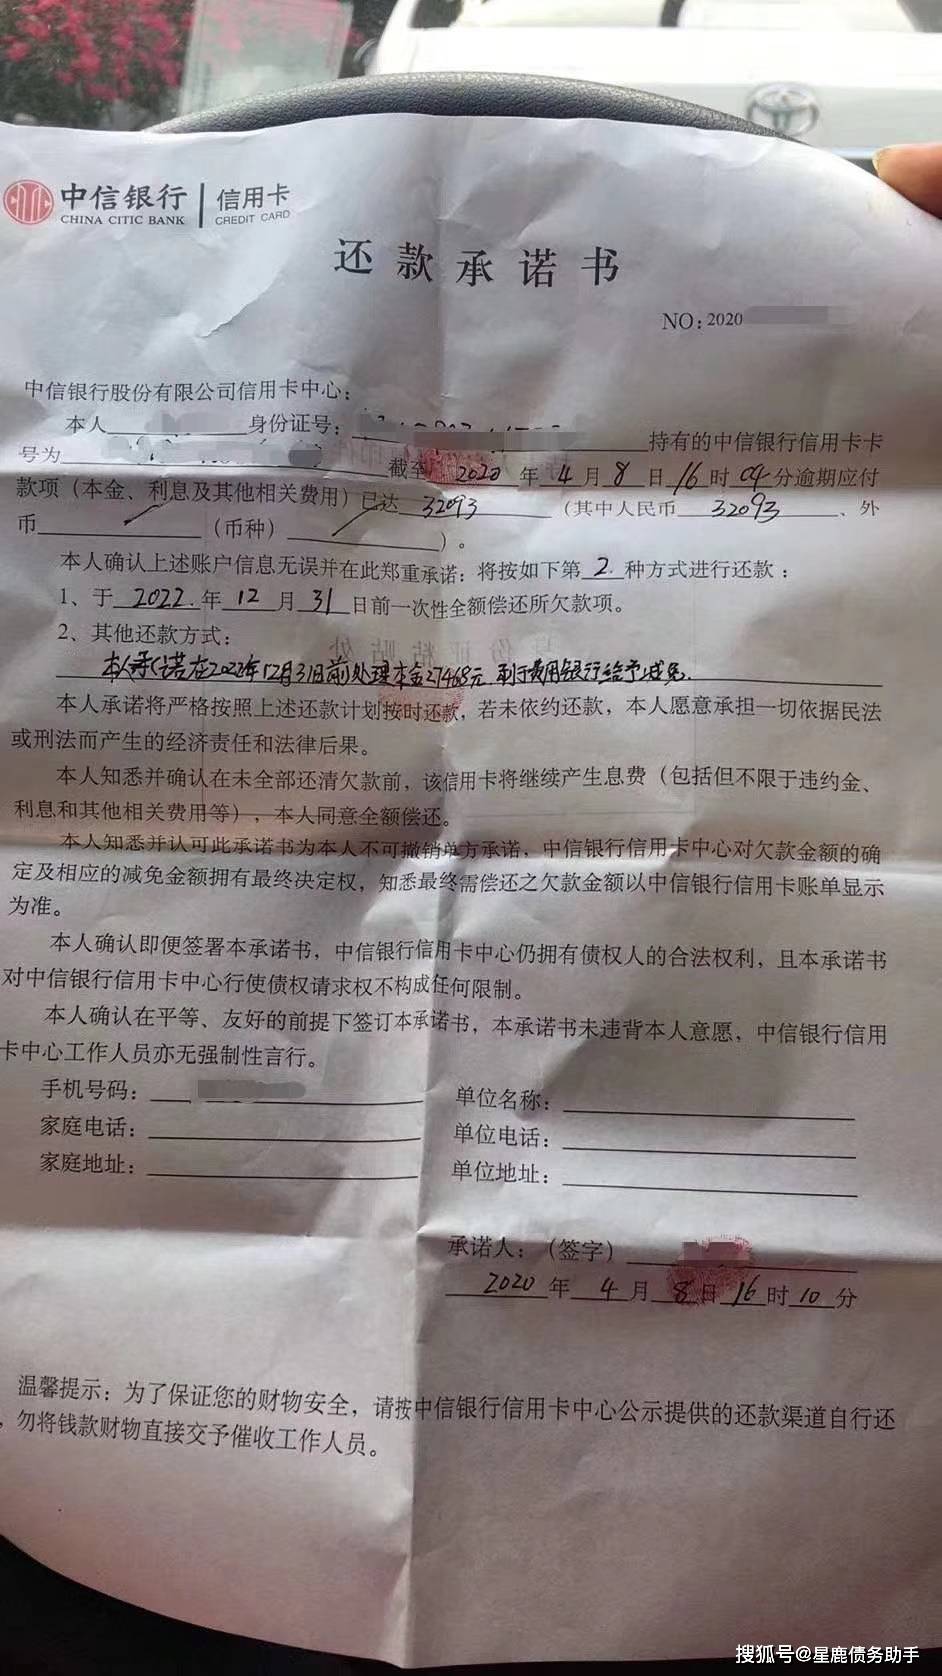 中信银行 信用卡
CHINA CITIC BANK CREDIT CARD
还款承诺书
NO:2020
中信银行股份有限公司信用卡中心:
本人 身份证号: 持有的中信银行信用卡卡
号为 截至 2020 年 4 月 8 日 16 时 04 分逾期应付
款项(本金、利息及其他相关费用)已达 32093 (其中人民币 32093 、外
币 (币种) )。
本人确认上述账户信息无误并在此郑重承诺:将按如下第 2. 种方式进行还款:
1、于 2022. 年 12 月 31 日前一次性全额偿还所欠款项。
2、其他还款方式:
本人承诺在2022年12月31日前处理本金27468元 利费用银行给予减免.
本人承诺将严格按照上述还款计划按时还款,若未依约还款,本人愿意承担一切依据民法
或刑法而产生的经济责任和法律后果。
本人知悉并确认在未全部还清欠款前,该信用卡将继续产生息费(包括但不限于违约金、
利息和其他相关费用等),本人同意全额偿还。
本人知悉并认可此承诺书为本人不可撤销单方承诺,中信银行信用卡中心对欠款金额的确
定及相应的减免金额拥有最终决定权,知悉最终需偿还之欠款金额以中信银行信用卡账单显示
为准。
本人确认即便签署本承诺书,中信银行信用卡中心仍拥有债权人的合法权利,且本承诺书
对中信银行信用卡中心行使债权请求权不构成任何限制。
本人确认在平等、友好的前提下签订本承诺书,本承诺书未违背本人意愿,中信银行信用
卡中心工作人员亦无强制性言行。
手机号码: 单位名称:
家庭电话: 单位电话:
家庭地址: 单位地址:
承诺人:(签字)
2020 年 4 月 8 日 16 时 10 分
温馨提示:为了保证您的财物安全,请按中信银行信用卡中心公示提供的还款渠道自行还
,勿将钱款财物直接交予催收工作人员。
搜狐号@星鹿债务助手